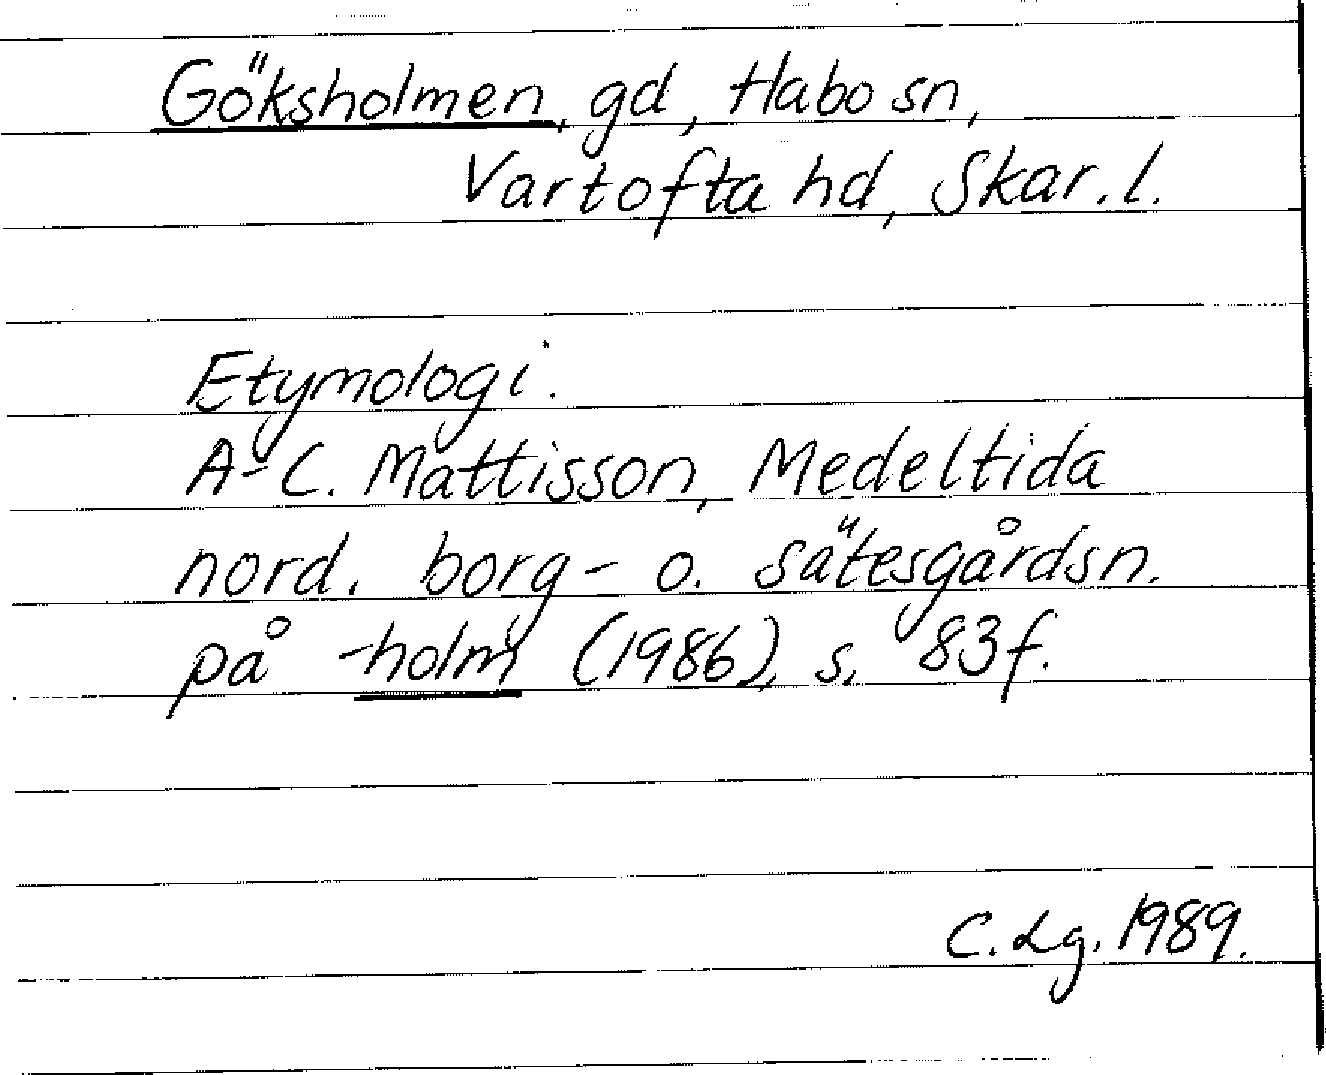 Göksholmen, gd, Habo sn,
Vartofta hd, Skar. l.
Etymologi.
A-C. Mattisson, Medeltida
nord. borg- o. sätesgårdsn.
på -holm (1986), s. 83f.
C. Lg. 1989.